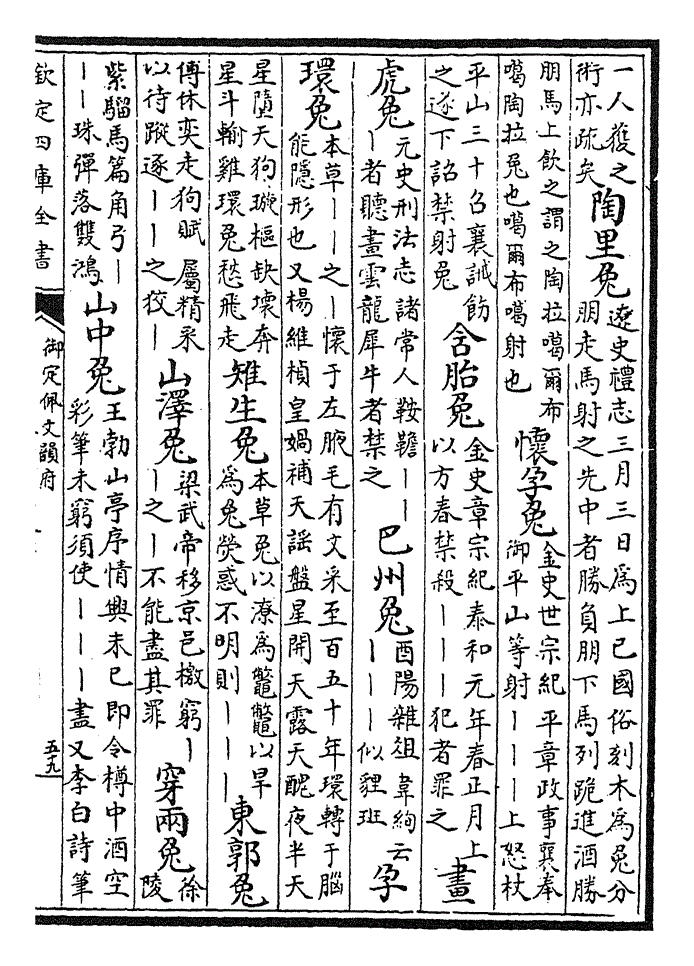 一人獲之
術亦疏矣
陶里兔
遼史禮志三月三日爲上巳國俗刻木爲兔分
朋走馬射之先中者勝負朋下馬列跪進酒勝
朋馬上飲之謂之陶拉噶爾布
噶陶拉兔也噶爾布噶射也
懷孕兔
金史世宗紀平章政事襄奉
御平山等射｜｜｜上怒杖
平山三十召襄誡飭
之遂下詔禁射兔
含胎兔
金史章宗紀泰和元年春正月上
以方春禁殺｜｜｜犯者罪之
畫
虎兔
元史刑法志諸常人鞍韂｜｜
｜者聽畫雲龍犀牛者禁之
巴州兔
酉陽雜俎韋絢云
｜｜｜似貍班
孕
環兔
本草｜｜之｜懷于左腋毛有文采至百五十年環轉于腦
能隱形也又楊維楨皇媧補天謠盤星開天露天醜夜半天
星墮天狗璇樞缺壞奔
星斗輸雞環兔愁飛走
雉生兔
本草兔以潦爲鼈鼈以旱
爲兔熒惑不明則｜｜｜
東郭兔
傅休奕走狗賦屬精采
以待蹤逐｜｜之狡｜
山澤兔
梁武帝移京邑檄窮｜
｜之｜不能盡其罪
穿兩兔
徐
陵
紫騮馬篇角弓｜
｜｜珠彈落雙鴻
山中兔
王勃山亭序情興未已即令樽中酒空
彩筆未窮須使｜｜｜盡又李白詩筆
欽定四庫全書
御定佩文韻府
五十九